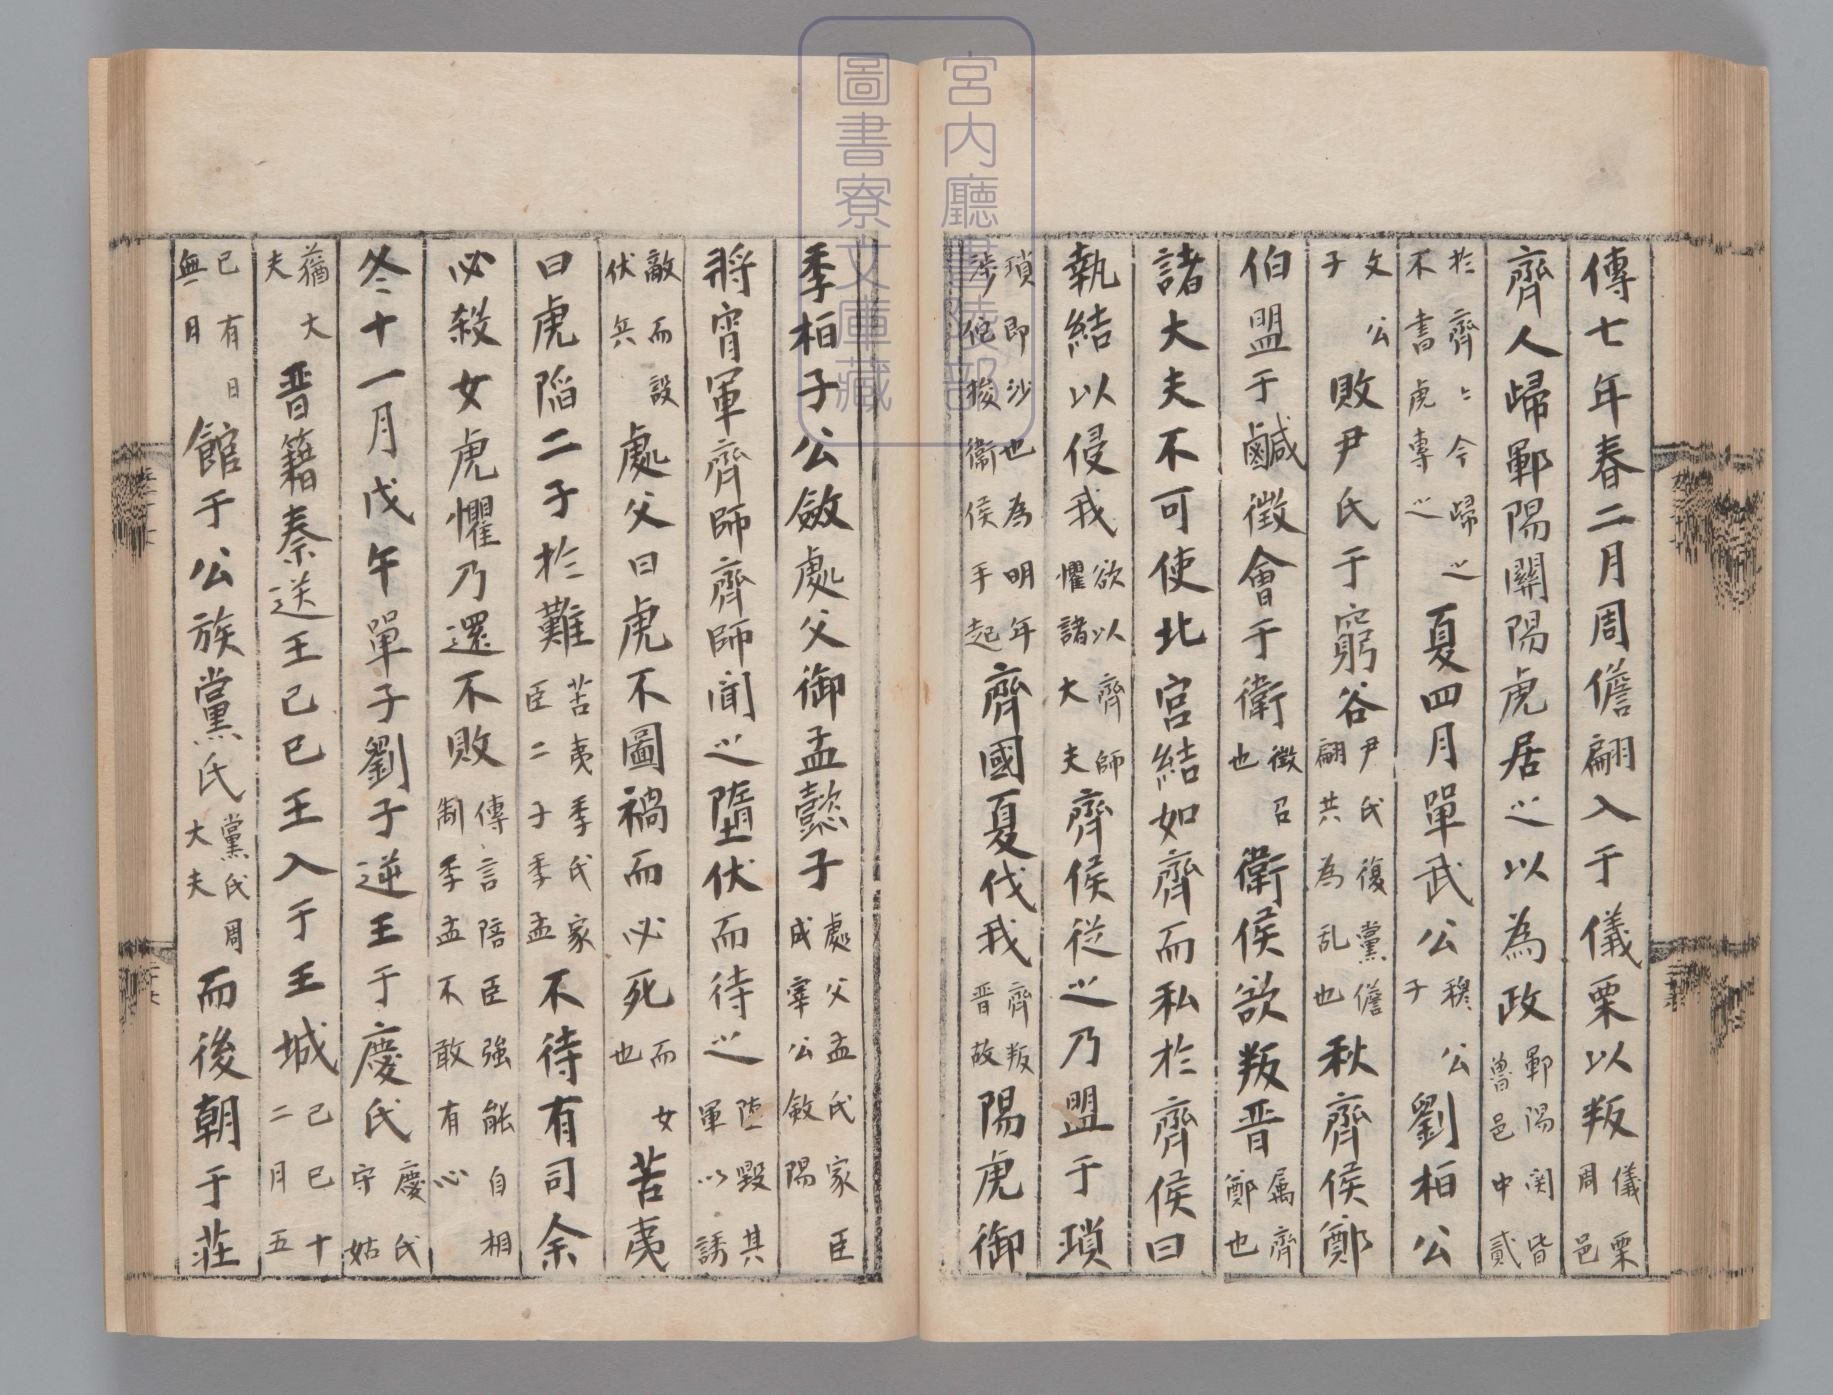 傳七年春二月周儋翩入于儀栗以叛儀栗周邑
齊人歸鄆陽關陽虎居之以為政鄆陽関皆魯邑中貳
於齊〻今歸之不書虎專之夏四月單武公穆公子劉柏公
文公子敗尹氏于窮谷尹氏復黨儋翩共為乱也秋齊侯鄭
伯盟于鹹徵會于衛徵召也衛侯欲叛晋属齊鄭也
諸大夫不可使北宮結如齊而私於齊侯曰
執結以侵我欲以齊師懼諸大夫齊侯從之乃盟于瑣
瑣即沙也為明年涉佗捘衛侯手起齊國夏伐我齊叛晋故陽虎御
季柏子公斂處父御孟懿子處父孟氏家臣成宰公斂陽
將宵軍齊師齊師聞之墮伏而待之墮毀其軍以誘
敵而設伏兵處父曰虎不圖禍而必死而女也苫夷
曰虎陷二子於難苫夷季氏家臣二子季孟不待有司余
必殺女虎懼乃還不敗傳言陪臣強能自相制季孟不敢有心
冬十一月戊午單子劉子逆王于慶氏慶氏守姑
蕕大夫晋籍秦送王己巳王入于王城己巳十二月五
已有日無月館于公族黨氏黨氏周大夫而後朝于莊
宮内廳書陵部
圖書寮文庫藏